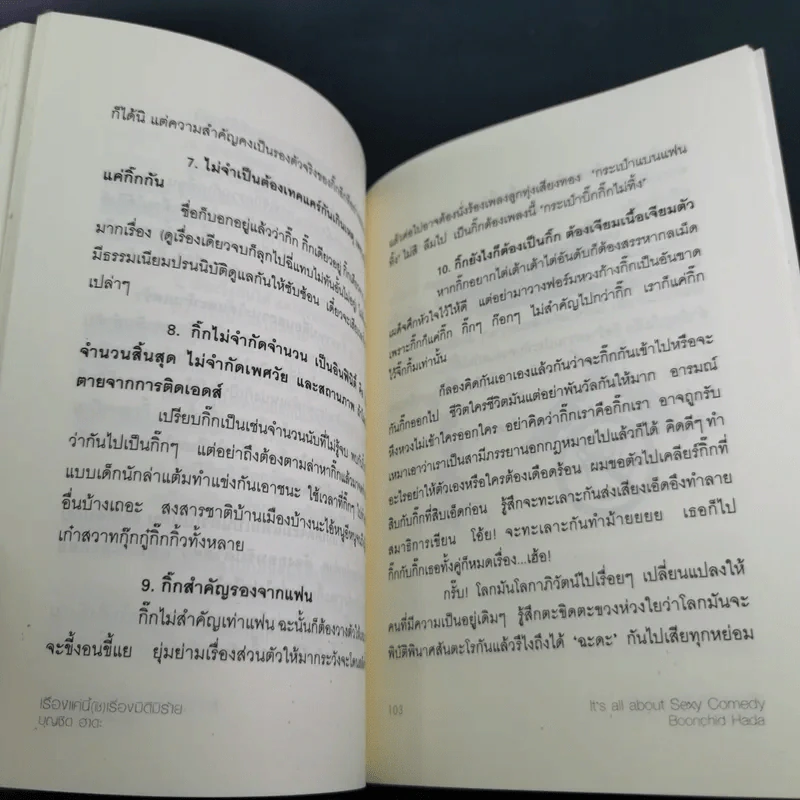 ก็ได้นิ แต่ความสำคัญคงเป็นรองตัวจริงของกิ๊ก
7. ไม่จำเป็นต้องเทคแคร์กันเกินเหตุ
แค่กิ๊กกัน
ชื่อก็บอกอยู่แล้วว่ากิ๊ก กิ๊กเดียวอยู่
มากเรื่อง (ดูเรื่องเดียวจบก็ลุกไปฉี่แทบไม่ทันอั้นไม่อยู่)
มีธรรมเนียมปรนนิบัติดูแลกันให้ซับซ้อน เดี๋ยวจะเสีย
เปล่าๆ
8. กิ๊กไม่จำกัดจำนวน เป็นอินฟินิตี้
จำนวนสิ้นสุด ไม่จำกัดเพศวัย และสถานภาพ
ตายจากการติดเอดส์
เปรียบกิ๊กเป็นเช่นจำนวนนับที่ไม่รู้จบ
ว่ากันไปเป็นกิ๊กๆ แต่อย่าถึงต้องตามล่าหากิ๊กแล้วมา
แบบเด็กนักล่าแต้มทำแข่งกันเอาชนะ ใช้เวลาที่กิ๊กๆ
อื่นบ้างเถอะ สงสารชาติบ้านเมืองบ้างนะไอ้หนูอีหนู
เก๋าสวาทกุ๊กกู๋กิ๊กกิ้วทั้งหลาย
9. กิ๊กสำคัญรองจากแฟน
กิ๊กไม่สำคัญเท่าแฟน ฉะนั้นก็ต้องวางตัวให้
จะขี้งอนขี้แย ยุ่มย่ามเรื่องส่วนตัวให้มากระวังจะโดน
เรื่องแค่นี้(เช่)เรื่องมิติมิร้าย
บุญชิต ฮาดะ
แล้วต่อไปอาจต้องนั่งร้องเพลงลูกทุ่งเสียงทอง "กระเป๋าแบนแฟน
ทิ้ง" ไม่สิ ลืมไป เป็นกิ๊กต้องเพลงนี้ "กระเป๋าบิ๊กกิ๊กไม่ทิ้ง"
10. กิ๊กยังไงก็ต้องเป็นกิ๊ก ต้องเจียมเนื้อเจียมตัว
หากกิ๊กอยากไต่เต้าเต้าไต่อันดับก็ต้องสรรหากลเม็ด
เผด็จศึกหัวใจไว้ให้ดี แต่อย่ามาวางฟอร์มหวงก้างกิ๊กเป็นอันขาด
เพราะกิ๊กก็แค่กิ๊ก กิ๊กๆ ก๊อกๆ ไม่สำคัญไปกว่ากิ๊ก เราก็แค่กิ๊ก
ไว้จั๊กกิ้มเท่านั้น
ก็ลองคิดกันเอาเองแล้วกันว่าจะกิ๊กกันเข้าไปหรือจะ
กันกิ๊กออกไป ชีวิตใครชีวิตมันแต่อย่าพันวัลกันให้มาก อารมณ์
หึงหวงไม่เข้าใครออกใคร อย่าคิดว่ากิ๊กเราคือกิ๊กเรา อาจถูกรับ
เหมาเอาว่าเราเป็นสามีภรรยานอกกฎหมายไปแล้วก็ได้ คิดดีๆ ทำ
อะไรอย่าให้ตัวเองหรือใครต้องเดือดร้อน ผมขอตัวไปเคลียร์กิ๊กที่
สิบกับกิ๊กที่สิบเอ็ดก่อน รู้สึกจะทะเลาะกันส่งเสียงเอ็ดอึงทำลาย
สมาธิการเขียน โอ้ย! จะทะเลาะกันทำม้ายยยย เธอก็ไป
กิ๊กกับกิ๊กเธอทั้งคู่ก็หมดเรื่อง...เฮ้อ!
กรั๊บ! โลกมันโลกาภิวัตน์ไปเรื่อยๆ เปลี่ยนแปลงให้
คนที่มีความเป็นอยู่เดิมๆ รู้สึกตะขิดตะขวงห่วงใยว่าโลกมันจะ
พิบัติพินาศสันตะโรกันแล้วรึไงถึงได้ 'ฉะดะ' กันไปเสียทุกหย่อม
103
It's all about Sexy Comedy
Boonchid Hada